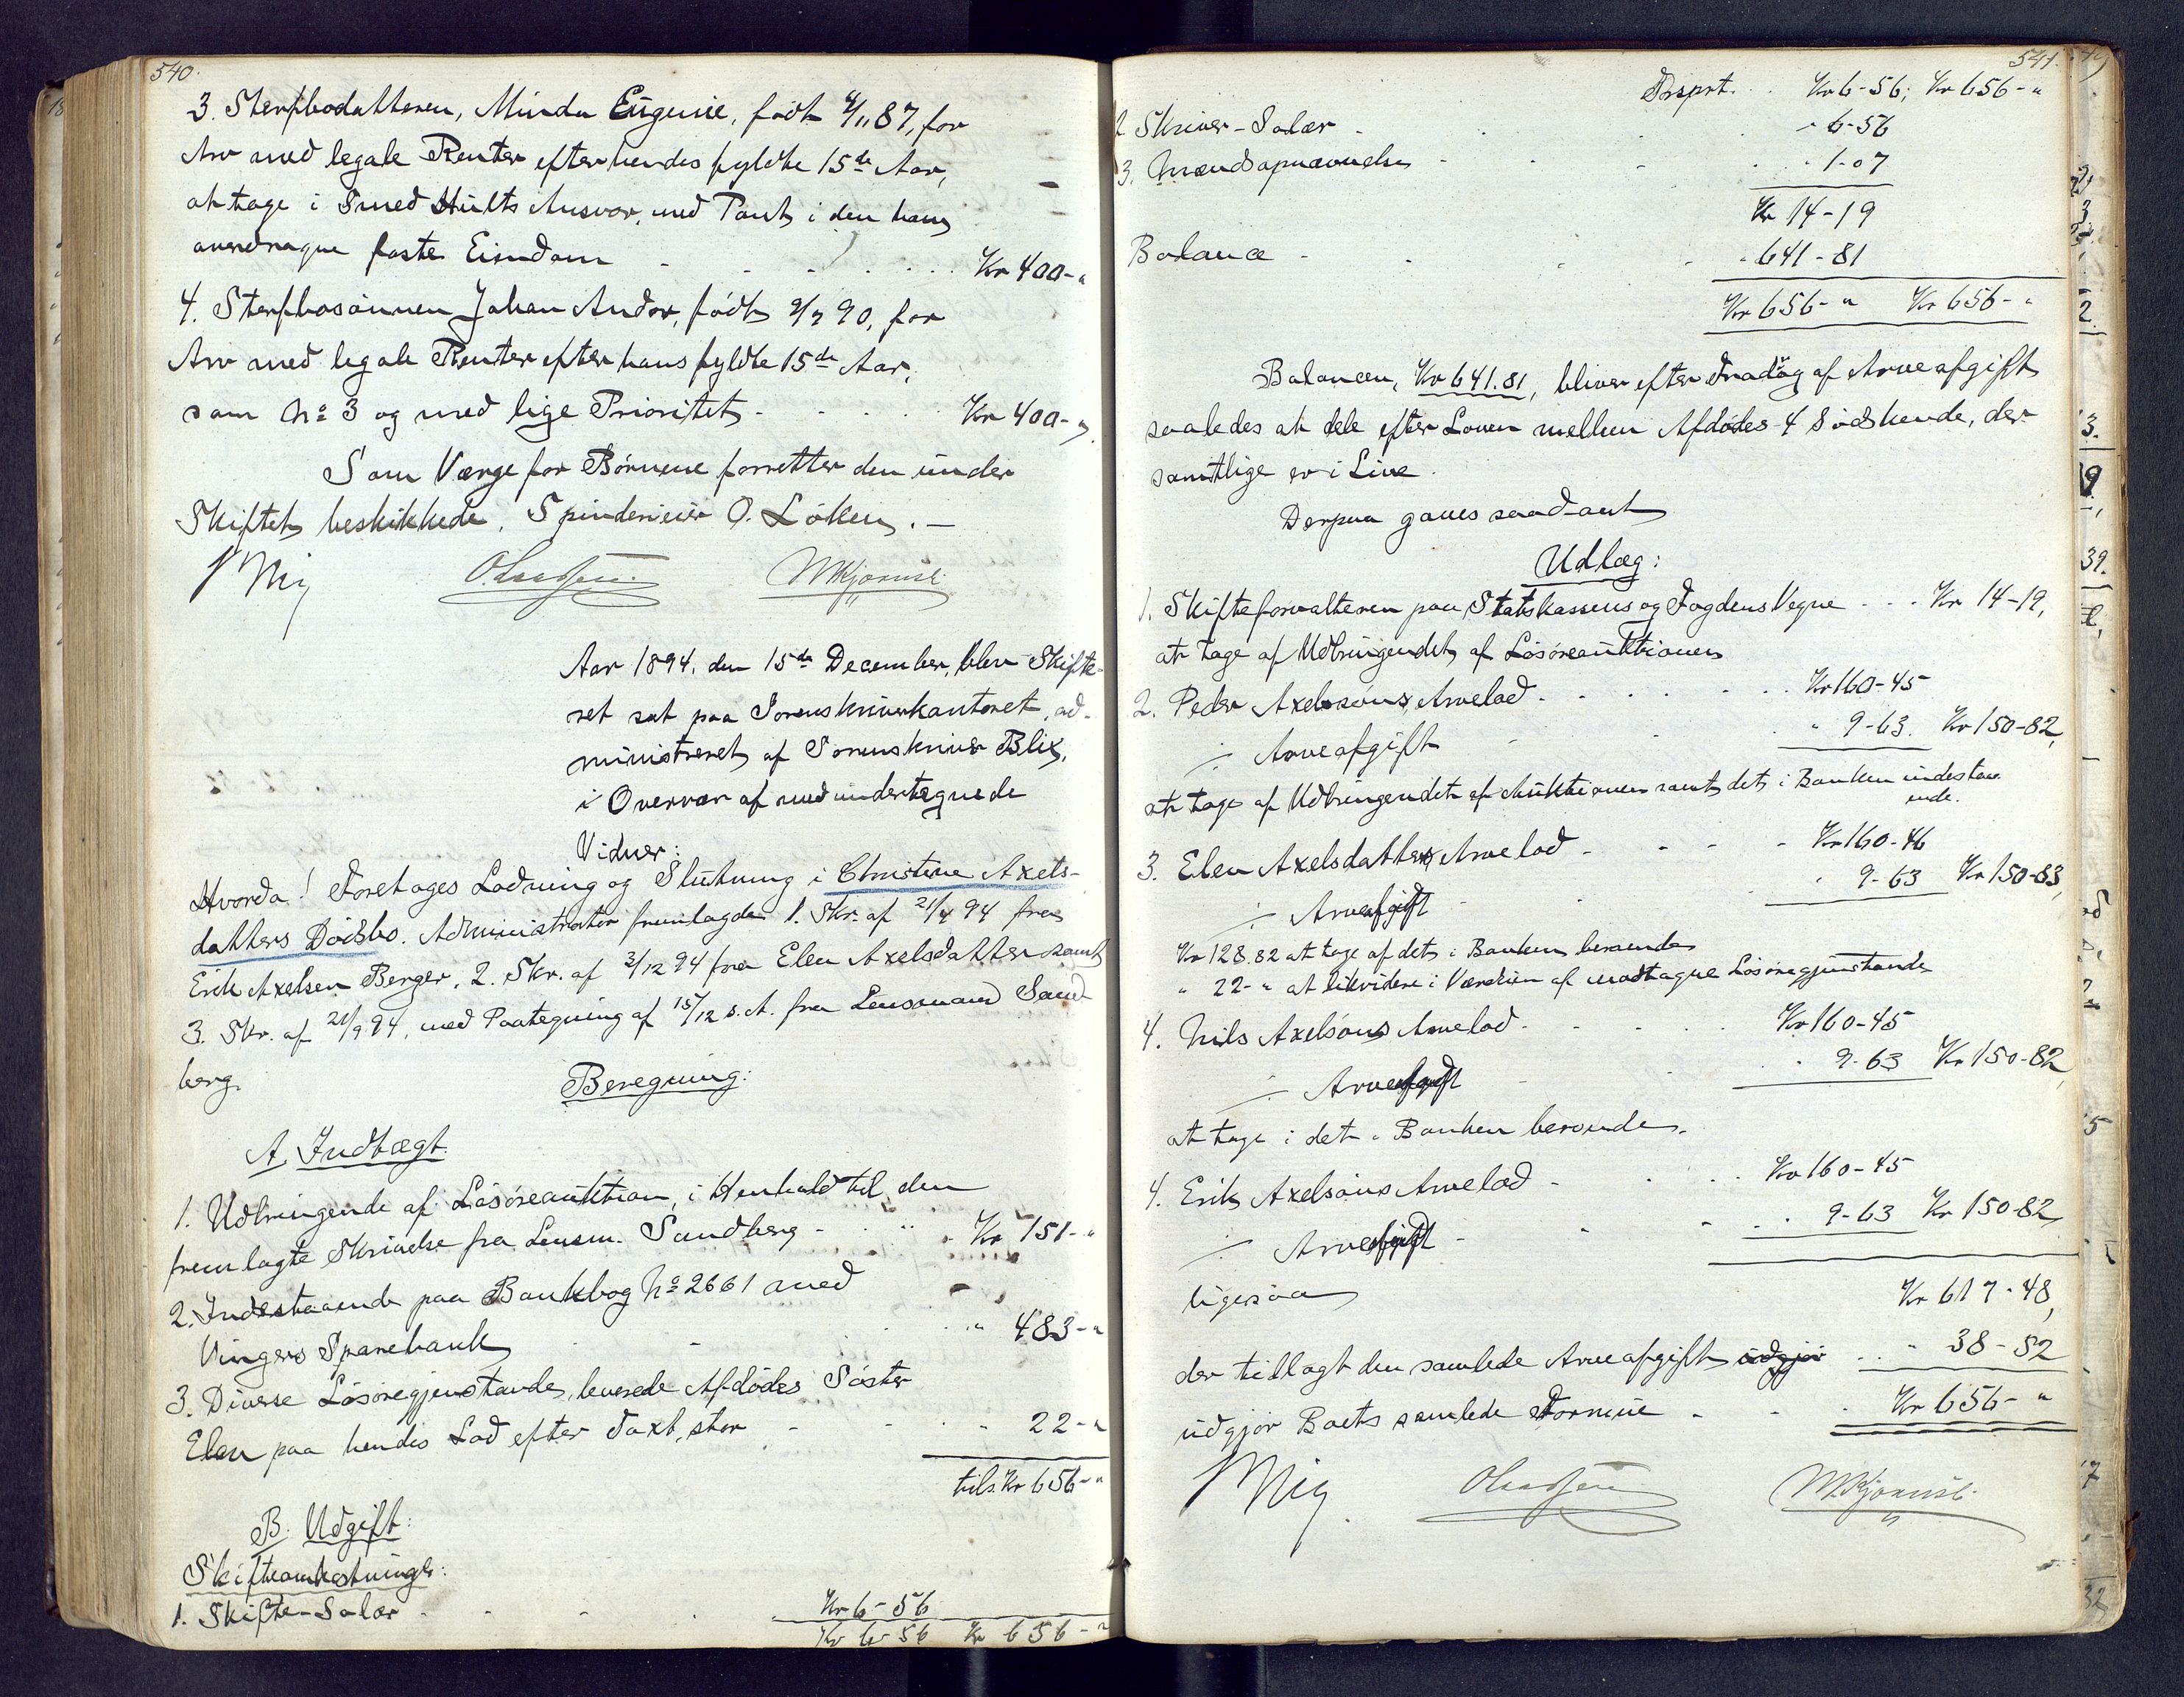 540.
3. Sterfbodatteren, Minda Eugenie, født 4/11 87, for
Arv med legale Renter efter hendes fyldte 15de Aar,
at tage i Smed Hults Ansvar, med Pant i den ham
overdragne faste Eiendom - - - . . . Kr 400-"
4. Sterfbosønnen Johan Andor, født 9/7 90, for
Arv med legale Renter efter hans fyldte 15de Aar,
som No 3 og med lige Prioritet - . . . Kr 400-"
Som Værge for Børnene forretter den under
Skiftet beskikkede, Spinderieier O. Løken. —
Blix
Aar 1894, den 15de December, blev Skifte-
ret sat paa Sorenskriverkontoret, ad-
ministreret af Sorenskriver Blix,
i Overvær af medundertegnede
Vidner:
Hvorda! Foretages Lodning og Slutning i Christine Axels-
datters Dødsbo. Administrator fremlagde 1. Skr. af 21/4 94 fra
Erik Axelsen Berger, 2. Skr. af 3/12 94 fra Elen Axelsdatter samt
3. Skr. af 21/9 94, med Paategning af 15/12 s. A. fra Lensmand Sand-
berg.
Beregning:
A. Indtægt.
1. Udbringende af Løsøreauktion, i Henhold til den
fremlagte Skrivelse fra Lensm. Sandberg - . " . Kr 151-"
2. Indestaaende paa Bankbog No 2661 med
Vingers Sparebank - - . . . " 483-"
3. Diverse Løsøregjenstande, leverede Afdødes Søster
Elen paa hendes Lod efter Taxt, stor - - . . 22-"
tils. Kr 656-"
B. Udgift:
Skifteomkostninger:
1. Skifte-Salær - - - . Kr 6-56
Kr 6-56 Kr 656-"
541.
Trsprt. . . Kr 6-56; Kr 656-"
2 Skriver-Salær - . . . - 6-56
3. Mændsopnævnelse - . - . . 1-07
Kr 14-19
Balance - . . - . 641-81
Kr 656-" Kr 656-"
Balancen, Kr 641.81, bliver efter Fradrag af Arveafgift
saaledes at dele efter Loven mellem Afdødes 4 Sødskende, der
samtlige er i Live.
Derpaa gaves saadant
Udlæg:
1. Skifteforvalteren paa Statskassens og Fogdens Vegne . . . Kr 14-19,
at tage af Udbringendet af Løsøreauktionen
2. Peder Axelsøns Arvelod - . . - . . Kr 160-45
÷ Arveafgift - . . " 9-63. Kr 150-82,
at tage af Udbringendet af Auktionen samt det i Banken indestaa-
ende.
3. Elen Axelsdatters Arvelod - - - - Kr 160-46
÷ Arveafgift - . " 9-63 Kr 150-83,
Kr 128.82 at tage af det i Banken beroende
" 22-" at likvidere i Værdien af modtagne Løsøregjenstande
4. Nils Axelsøns Arvelod - . . . . Kr 160-45
÷ Arveafgift - . " 9-63 Kr 150-82,
at tage i det i Banken beroende.
4. Erik Axelsøns Arvelod - . . . Kr 160-45
÷ Arveafgift - . - . . 9-63 Kr 150-82,
ligesaa
Kr 617-48,
der tillagt den samlede Arveafgift udgjør . . " 38-52
udgjør Boets samlede Formue - - . Kr 656-"
Blix